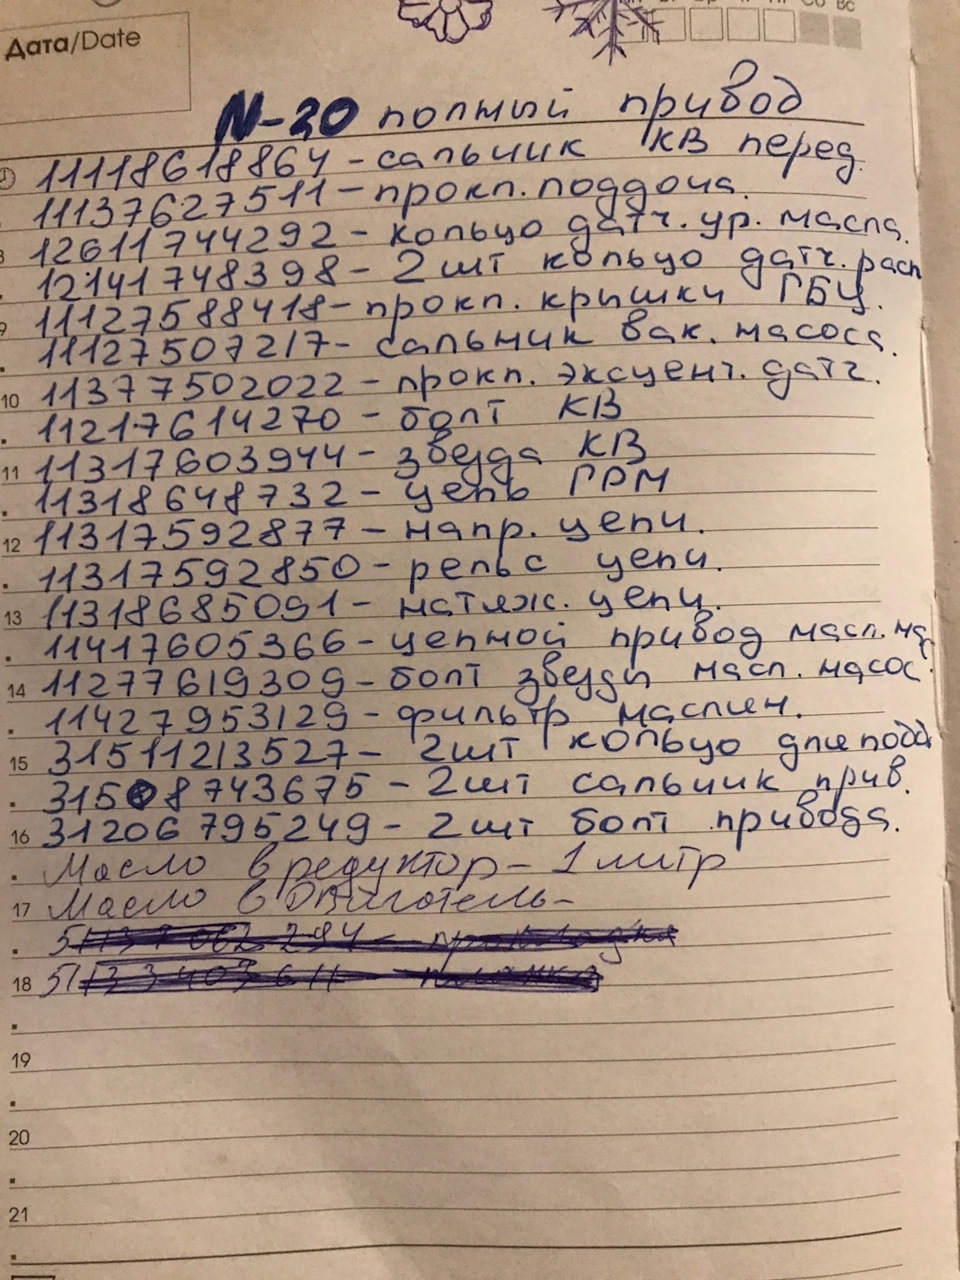 Сб Вс
Дата/Date
N-20 полный привод
11118618864 - сальник КВ перед.
11137627511 - прокл. поддона.
12611744292 - кольцо датч. ур. масла.
12141748398 - 2 шт кольцо датч. расп
11127588418 - прокл. крышки ГБЦ.
9
11127507217 - сальник вак. насоса.
11377502022 - прокл. эксцент. датч.
10
11217614270 - болт КВ
11317603944 - звезда КВ
11
11318648732 - цепь ГРМ
11317592877 - напр. цепи.
12
11317592850 - рельс цепи.
11318685091 - натяж. цепи.
13
11417605366 - цепной привод масл. на
11277619309 - болт звезды масл. насос.
14
11427953129 - фильтр маслян.
31511213527 - 2 шт кольцо для подд
15
31508743675 - 2 шт сальник прив.
31206795249 - 2 шт болт привода.
16
Масло в редуктор - 1 литр
Масло в двигатель -
17
18
19
20
21